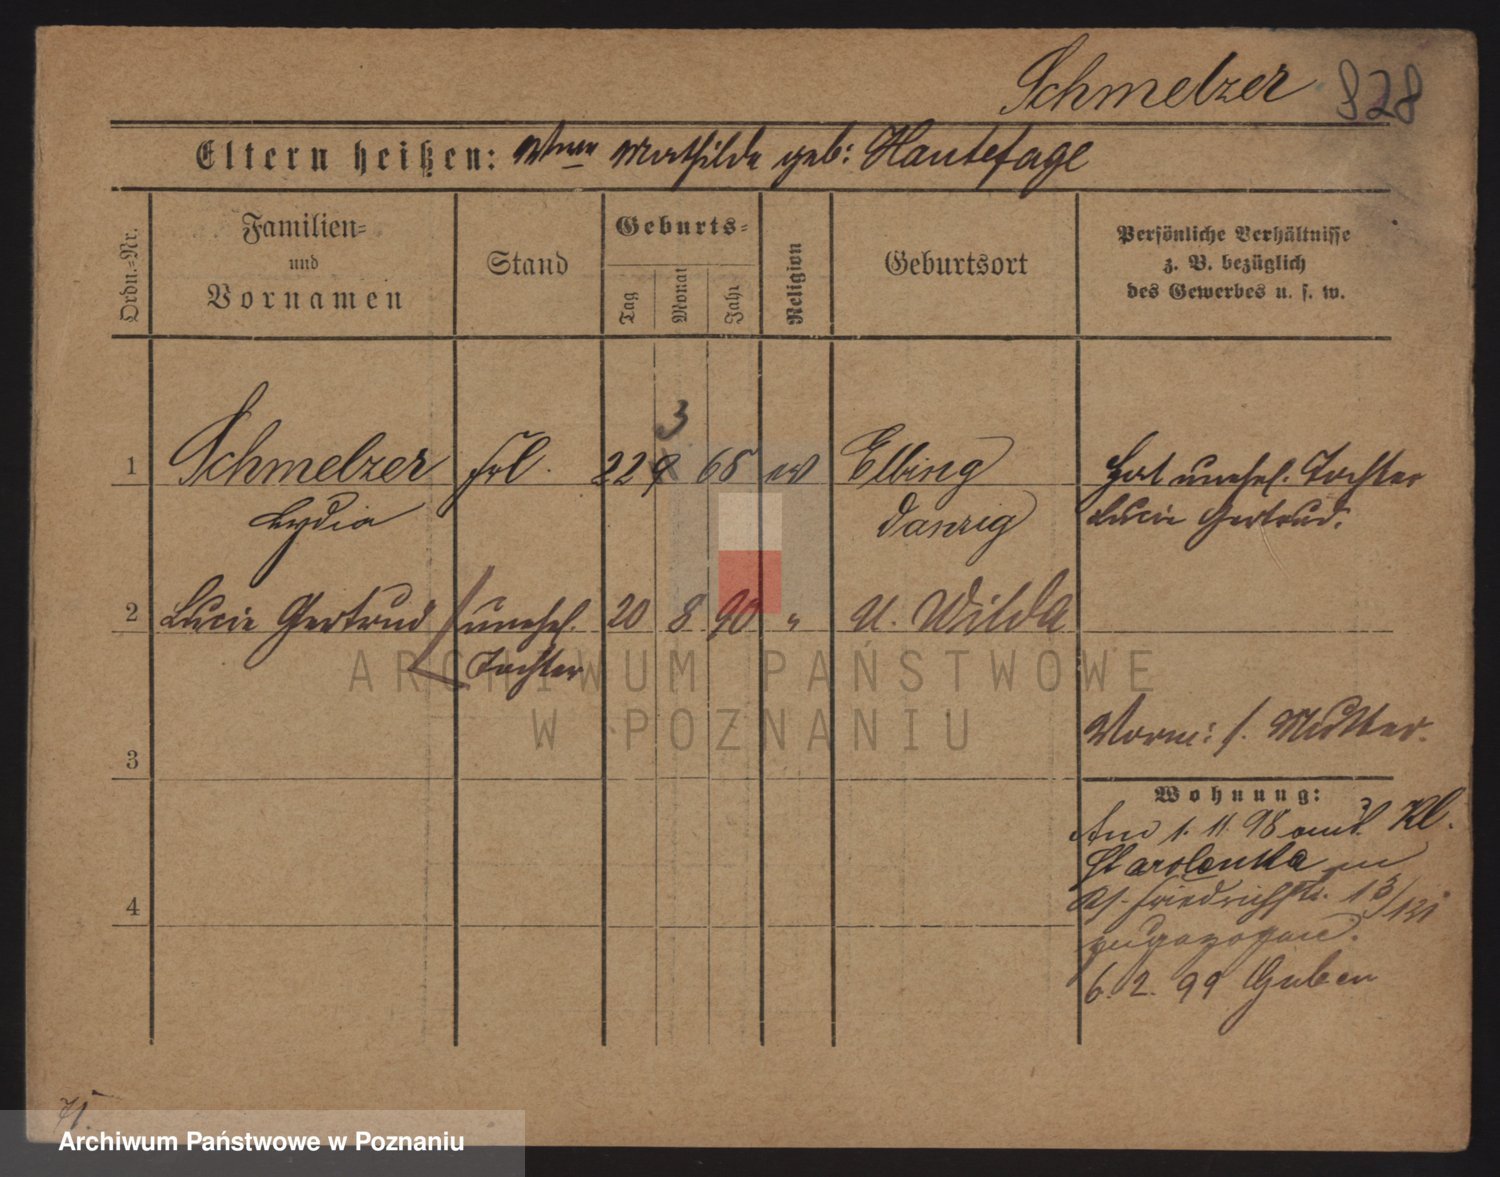 Schmelzer 828
Eltern heißen: Mathilde geb: Hautefage
Ordn.-Nr.
Familien-
und
Vornamen
Stand
Geburts-
Tag
Monat
Jahr
Religion
Geburtsort
Persönliche Verhältnisse
z. B. bezüglich
des Gewerbes u. s. w.
3
1 Schmelzer Frl. 22 9 65 ev Elbing Hat unehel. Tochter
Lydia Danzig Lucie Gertrud.
2 Lucie Gertrud unehel. 20 8 90 " U. Wilda
Tochter
ARCHIWUM PAŃSTWOWE
W POZNANIU
Vorm: s. Mutter.
3
Wohnung:
Am 1. 11. 98 Kl.
Starolenka
Friedrichstr. 13/
4
zugezogen.
6. 2. 99 Guben
71.
Archiwum Państwowe w Poznaniu